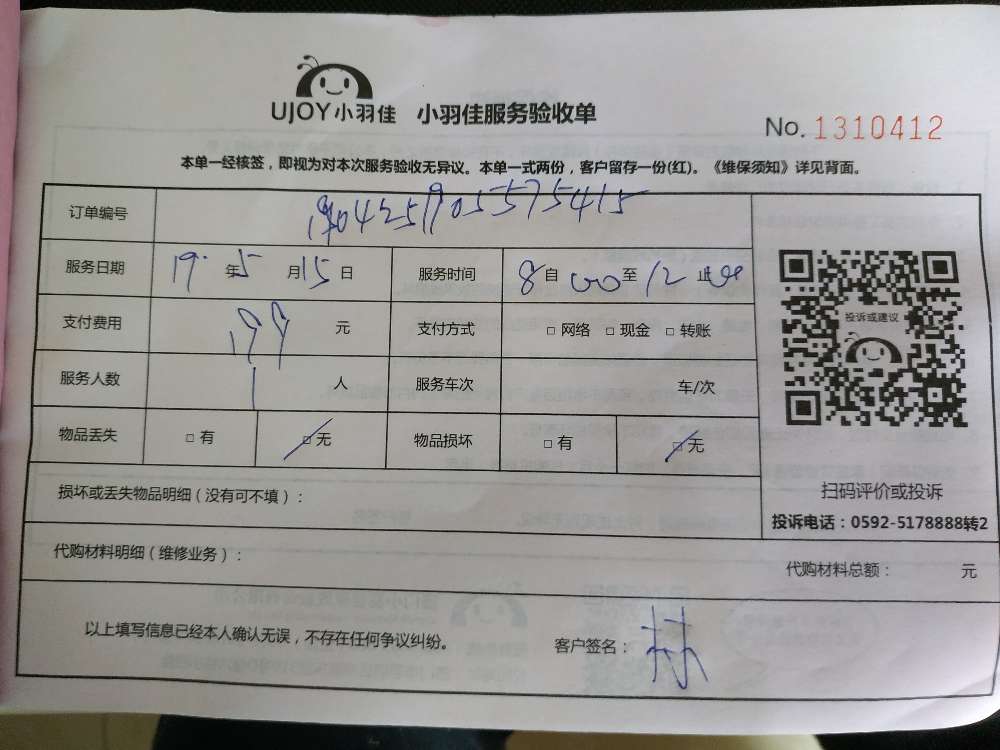 UJOY小羽佳 小羽佳服务验收单
No. 1310412
本单一经核签，即视为对本次服务验收无异议。本单一式两份，客户留存一份(红)。《维保须知》详见背面。
订单编号 1904251905575415
服务日期 19年5月15日 服务时间 8自00至12止00
支付费用 199元 支付方式 □网络 □现金 □转账
投诉或建议
服务人数 1人 服务车次 车/次
物品丢失 □有 □无 物品损坏 □有 □无
损坏或丢失物品明细（没有可不填）：
扫码评价或投诉
投诉电话：0592-5178888转2
代购材料明细（维修业务）：
代购材料总额： 元
以上填写信息已经本人确认无误，不存在任何争议纠纷。 客户签名：林